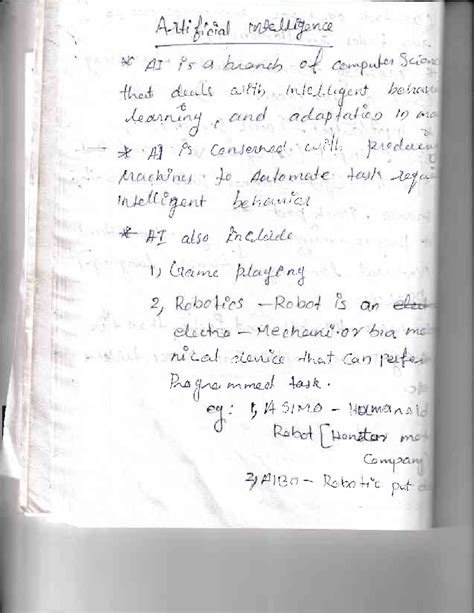 Artificial intelligence
* AI is a branch of computer Scien
that deals with intelligent behav
learning, and adaptatio in ma
* AI is conserned with produce
Machines to Automate task requ
intelligent behavior
* AI also Include
1, Game playeng
2, Robotics - Robot is an elect
electro - Mechani. or bia me
nical device that can perfe
Programmed task.
eg: 1, ASIMO - Humanoid
Robot [Honster mot
Company
2, AIBO - Robotic pet